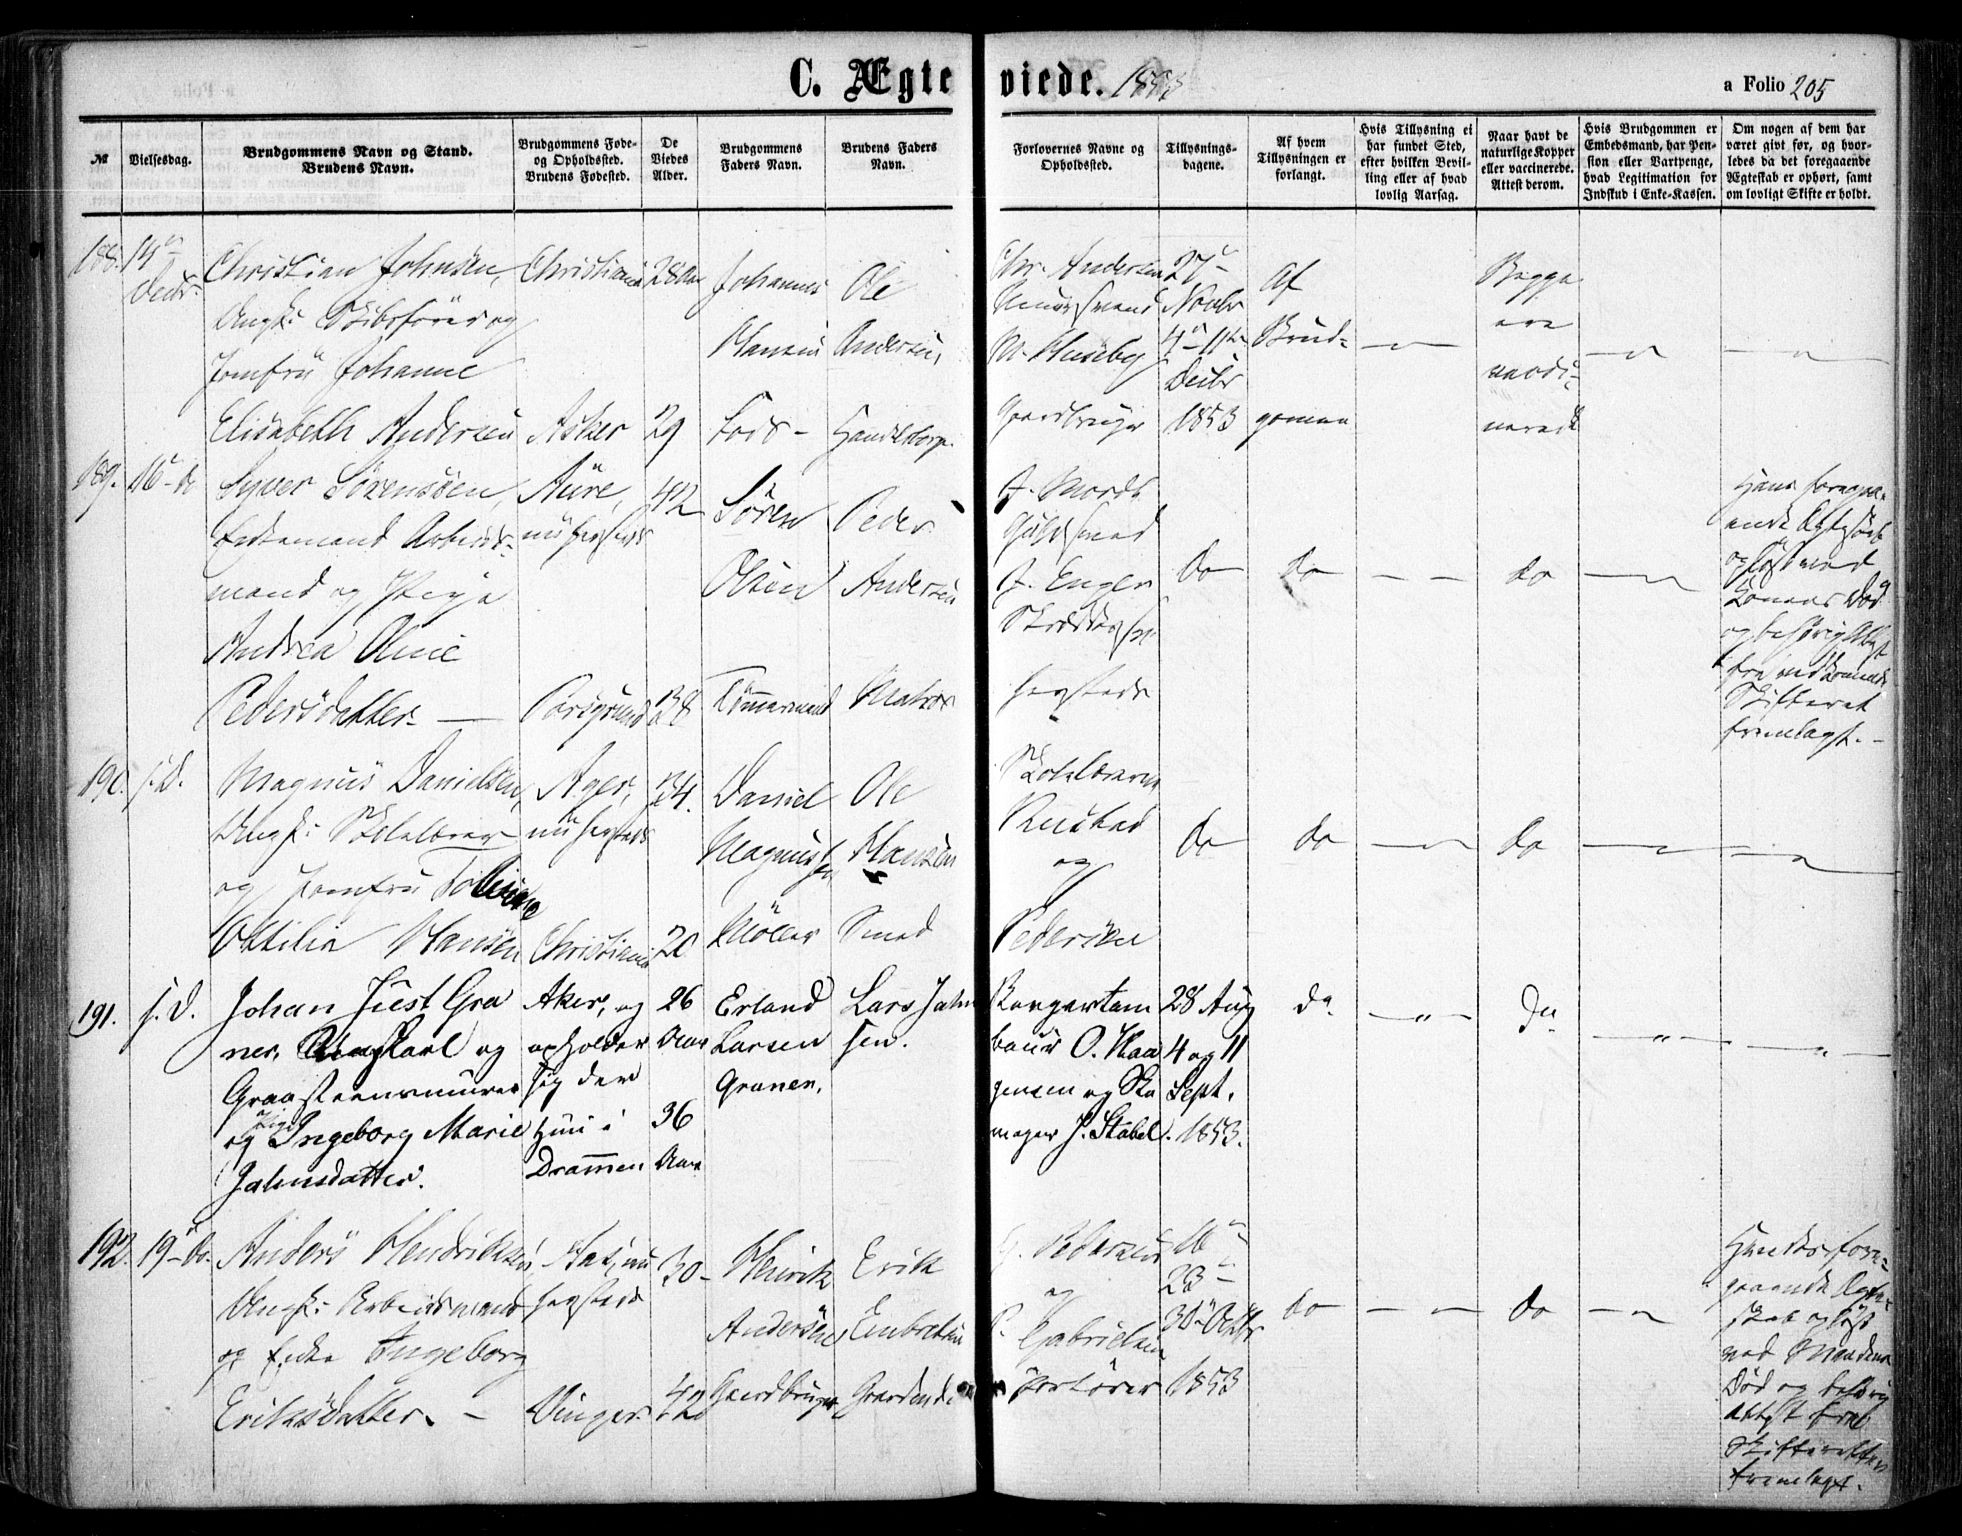 C. Ægte viede. 1853
a Folio 205
№
Vielsesdag.
Brudgommens Navn og Stand.
Brudens Navn.
Brudgommens Føde-
og Opholdssted.
Brudens Fødested.
De
Viedes
Alder.
Brudgommens
Faders Navn.
Brudens Faders
Navn.
Forlovernes Navne og
Opholdssted.
Tillysnings-
dagene.
Af hvem
Tillysningen er
forlangt.
Hvis Tillysning ei
har fundet Sted,
efter hvilken Bevil-
ling eller af hvad
lovlig Aarsag.
Naar havt de
naturlige Kopper
eller vaccinerede.
Attest derom.
Hvis Brudgommen er
Embedsmand, har Pen-
sion eller Vartpenge,
hvad Legitimation for
Indskud i Enke-Kassen.
Om nogen af dem har
været givt før, og hvor-
ledes da det foregaaende
Ægteskab er ophørt, samt
om lovligt Skifte er holdt.
188. 14
Decbr
Christian Johnsen,
Ungk: Skibsfører og
Jomfru Johanne
Elisabeth Andersen
Christiania
Asker
28 Aar
29
Johannes
Hansen
Ole
Andersen,
Chr. Andersen
M. Huseby
Gaardbruger
27
Novbr
4 - 11
Decbr
1853
Af
Brud-
gomen
Begge
ere
vacci-
nerede
189. 16 - do
Syver Sörensöen,
Enkemand Arbeids-
mand og Pige
Andrea Oline
Pedersdatter
Aure,
nu hersteds
Porsgrund
42
38
Sören
Olsen
Tömmermand
Peder
Andersen
Matros
Guldsmed
J. Enger
hersteds
do
do
do
Hans foregaa-
ende Ægteskab
oplöst ved
Konens Död
og behörig Attest
fra vedkommende
Skifteret
fremlagt.
190. s. D.
Magnus Danielsen,
Ungk: Skolelærer
og Jomfru
Ottilia Hansen
Ager,
nu hersteds
Christiania
34.
20
Daniel
Magnussen
Möller
Ole
Hansen
Smed
Skolelærerne
Rustad
og
Pedersen
do
do
do
191. s. D.
Johan Just Gra
ner, Ungkarl og
Graasteensmurer
og Pige Ingeborg Marie
Jahnsdatter.
Aker, og
opholder
sig der
hun i
Drammen
26
Aar
36
Aar
Erland
Larsen
Graner.
Lars Jahn
sen.
O. Haa
gensen og Sko
mager J. Stabel.
28 Aug
4 og 11
Sept.
1853.
do
do
192. 19 - do.
Anders Hendriksen
Ungk: Arbeidsmand
og Enke Ingeborg
Eriksdatter.
nu
hersteds
Vinger
30
42
Henrik
Andersen
Gaardbruger
Erik
Embretsen
Pedersen
og
P. Gabrielsen
16
23
30 Octbr
1853
do
do
Hendes fore-
gaaende Ægte-
skab oplöst
ved Mandens
Död og behörig
Attest fra
Skifteretten
fremlagt.